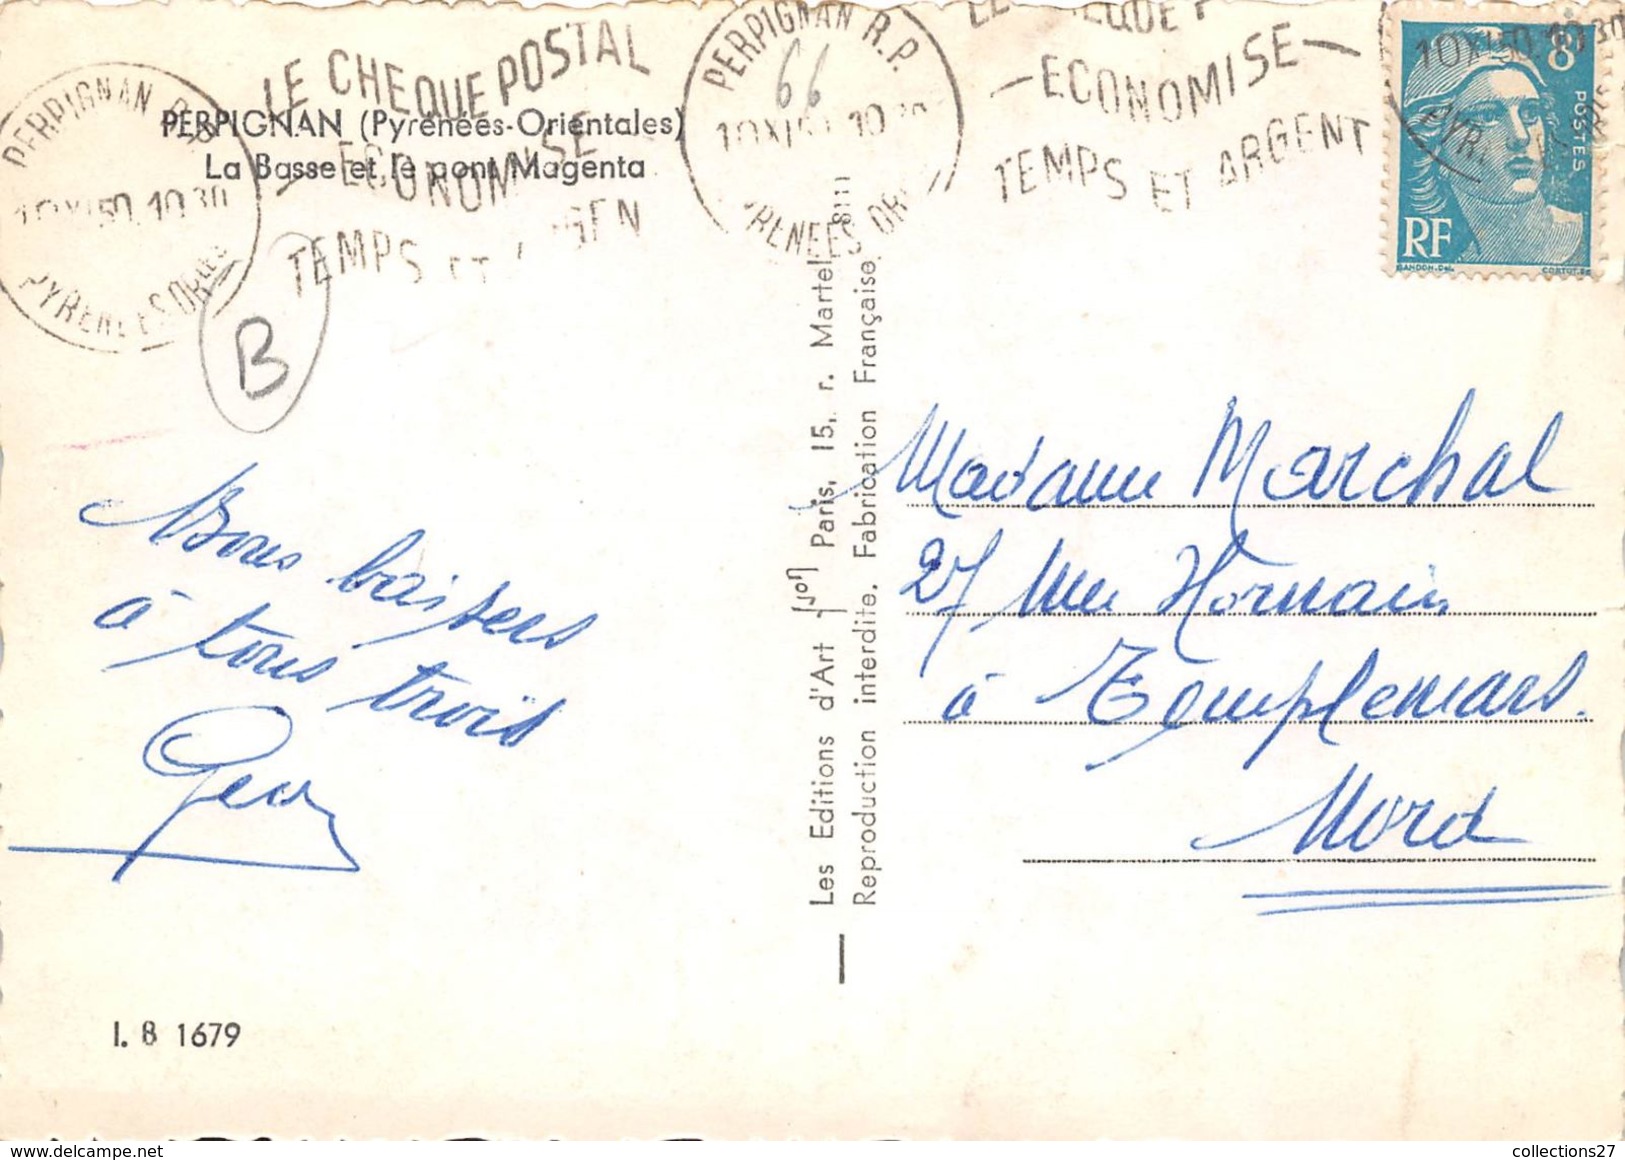 PERPIGNAN R.P.
10 XI 50. 10 30
PYRENEES ORLES
LE CHEQUE POSTAL
ECONOMISE
TEMPS ET
PERPIGNAN (Pyrénées-Orientales)
La Basse et le pont Magenta
PERPIGNAN R.P.
66
10 XI 50 10 30
ECONOMISE
TEMPS ET ARGENT
10 XI 50 10 30
8F
POSTES
RF
GANDON.Del.
B
Bons baisers
à tous trois
Geo
I. B 1679
Les Editions d'Art Yvon Paris, 15, r. Martel 8111
Reproduction interdite. Fabrication Française.
Madame Marchal
27 rue Hornain
à Templemars.
Nord
collections27